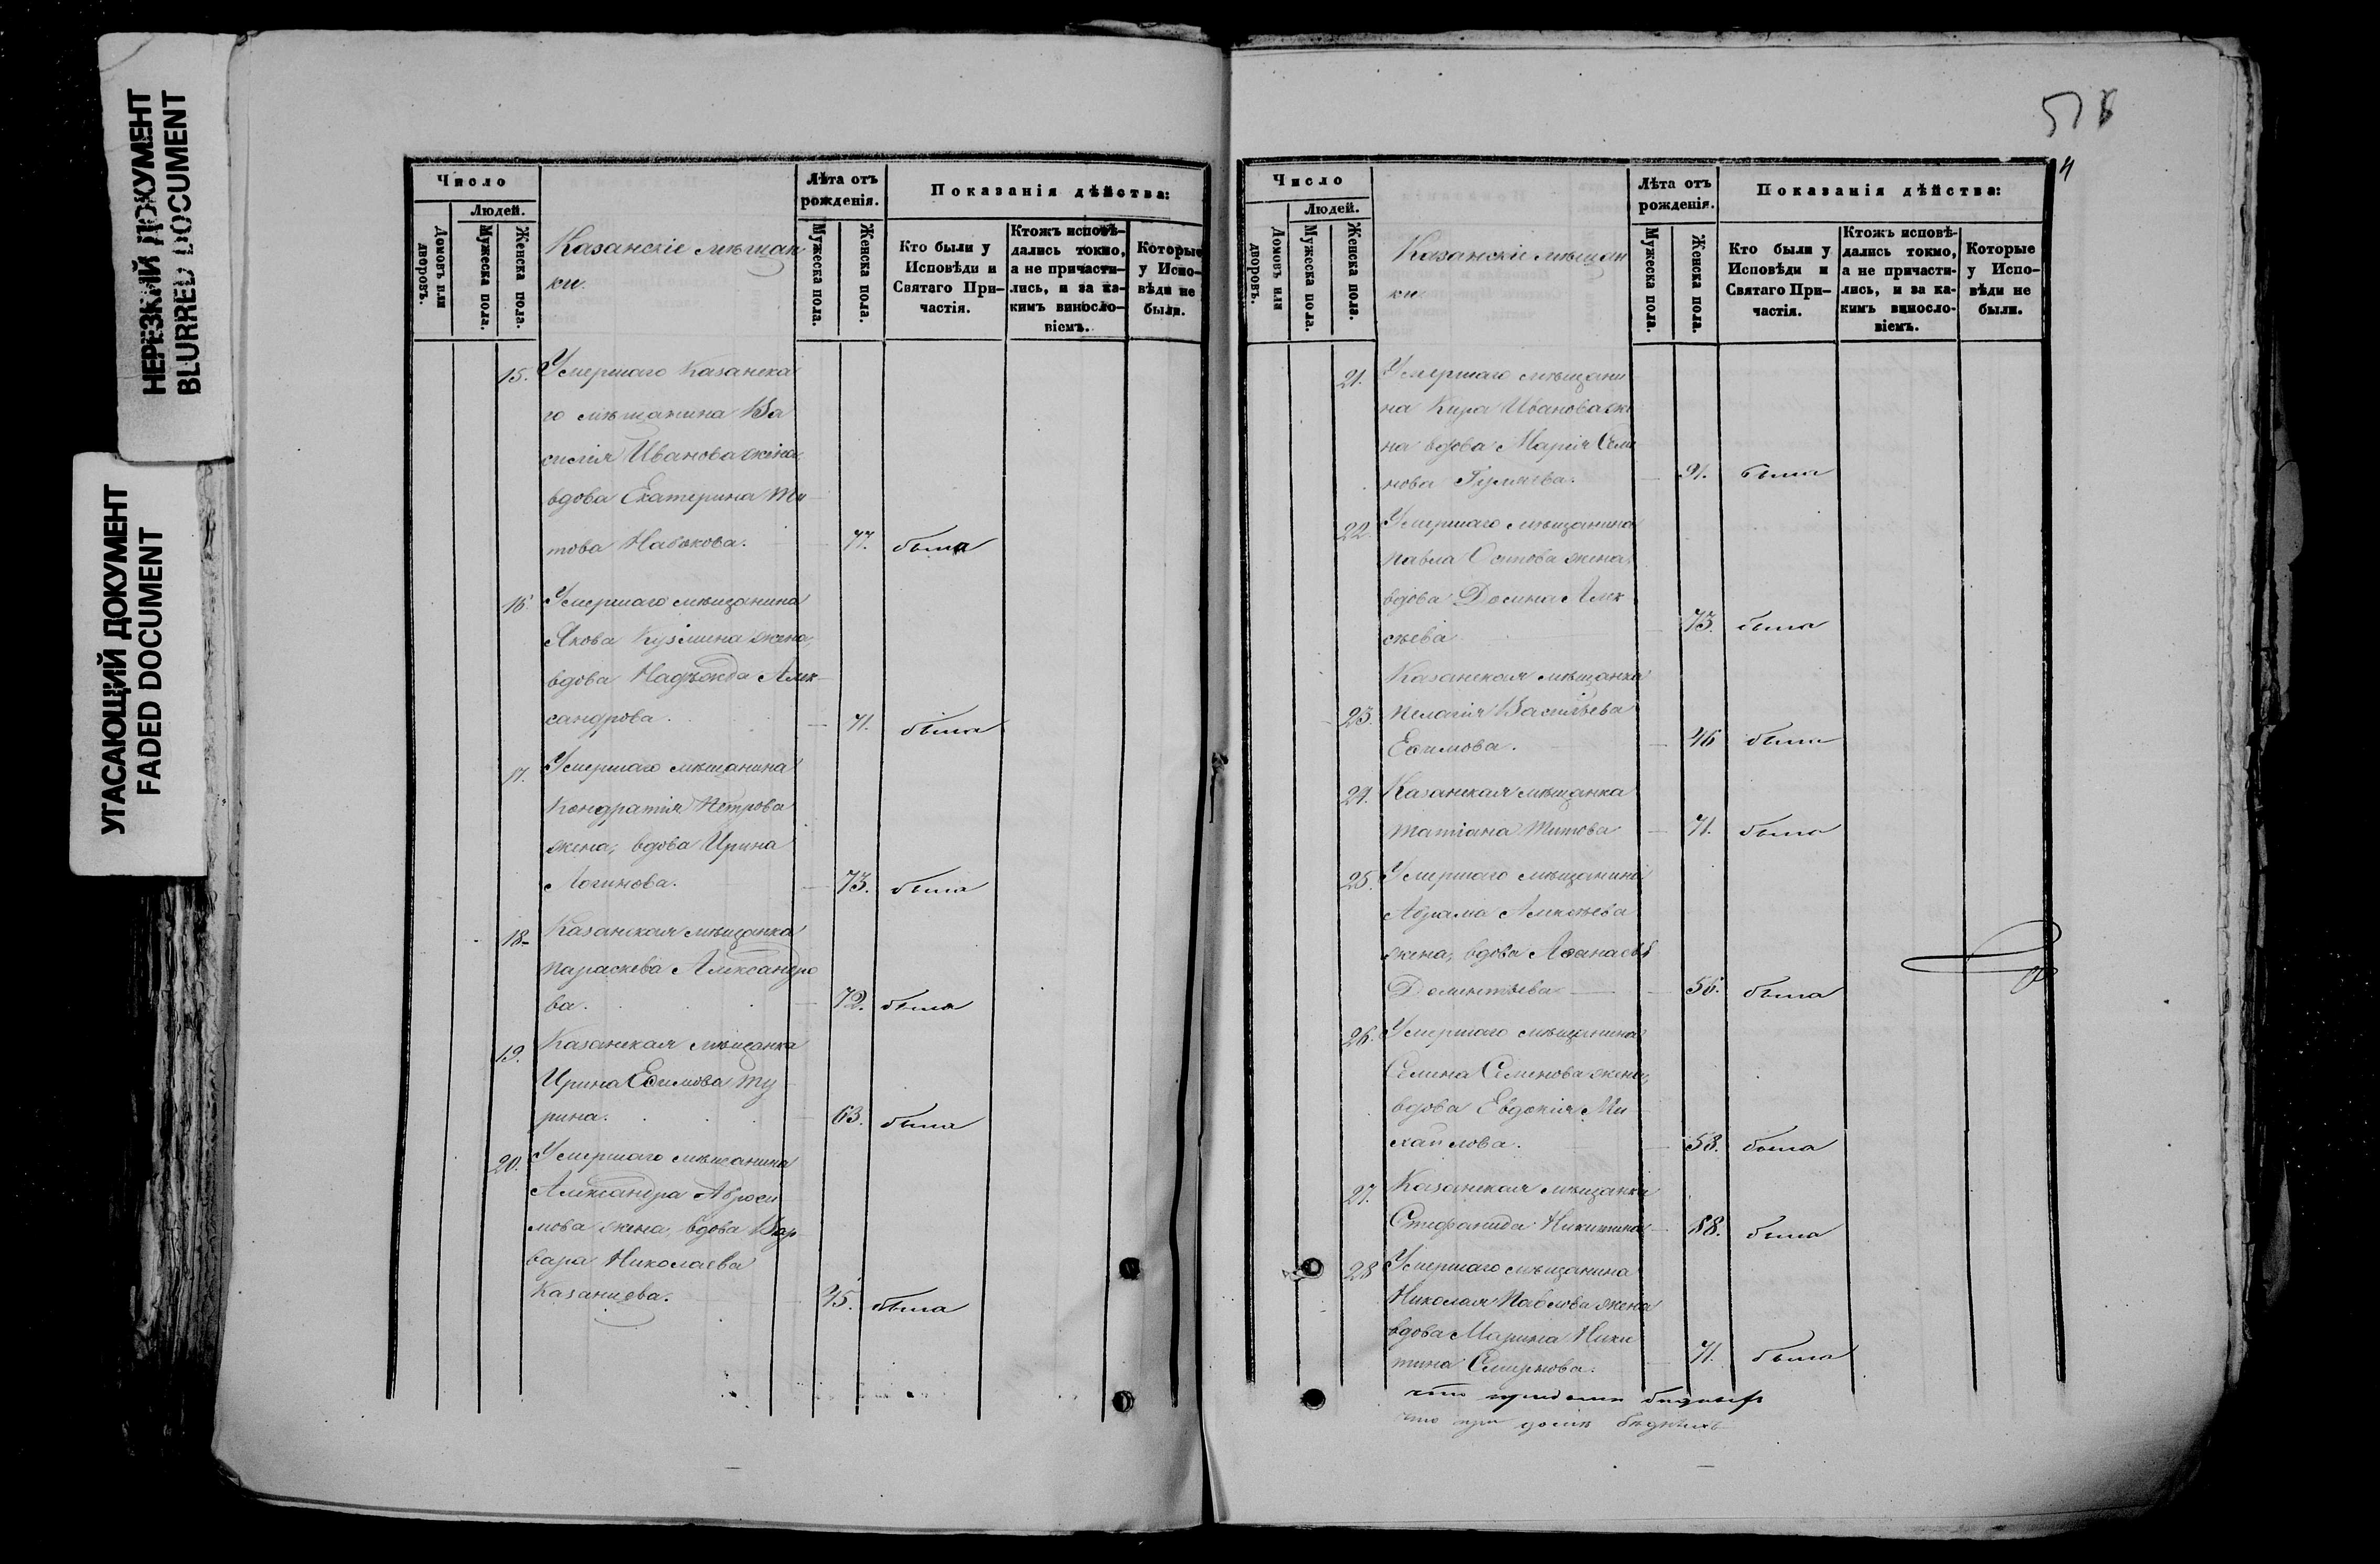 НЕРЕЗКИЙ ДОКУМЕНТ
BLURRED DOCUMENT
УГАСАЮЩИЙ ДОКУМЕНТ
FADED DOCUMENT
Число
Людей.
Домовъ или дворовъ.
Мужеска пола.
Женска пола.
Казанскіе мѣщан-
ки.
Лѣта отъ рожденія.
Мужеска пола.
Женска пола.
Показанія дѣйства:
Кто были у Исповѣди и Святаго Причастія.
Ктожъ исповѣдались токмо, а не причастились, и за какимъ винословіемъ.
Которые у Исповѣди не были.
15. Умершаго Казанска
го мѣщанина Ва
силія Иванова жена,
вдова Екатерина Ти
това Набокова. 77. была
16. Умершаго мѣщанина
Якова Кузмина жена,
вдова Надѣжда Алек
сандрова. 71. была
17. Умершаго мѣщанина
Кондратія Петрова
жена, вдова Ирина
Логинова. 73. была
18. Казанская мѣщанка
Параскева Александро
ва. 72. была
19. Казанская мѣщанка
Ирина Ефимова Ту
рина. 63. была
20. Умершаго мѣщанина
Александра Аброси
мова жена, вдова Вар
вара Николаева
Казанцева. 45. была
518
Число
Людей.
Домовъ или дворовъ.
Мужеска пола.
Женска пола.
Казанскіе мѣщан
ки
Лѣта отъ рожденія.
Мужеска пола.
Женска пола.
Показанія дѣйства:
Кто были у Исповѣди и Святаго Причастія.
Ктожъ исповѣдались токмо, а не причастились, и за какимъ винословіемъ.
Которые у Исповѣди не были.
21. Умершаго мѣщани
на Кира Иванова же
на вдова Марія Семе
нова 91. была
22. Умершаго мѣщанина
Павла жена,
вдова Домна Алек
сѣева 73. была
Казанская мѣщанка
23. Пелагія Васильева
Ефимова. 46 была
24. Казанская мѣщанка
Татіана Титова 71. была
25. Умершаго мѣщанина
Абрама Алексѣева
жена, вдова
Дементьева 56. была
26. Умершаго мѣщанина
Семена Семенова жена,
вдова Евдокія Ми
хайлова. 58. была
27. Казанская мѣщанка
Стефанида Никитина 88. была
28 Умершаго мѣщанина
Николая Павлова жена
вдова Марина Ники
тина Смирнова. 71. была
что при домѣ бѣдныхъ
что при домѣ бѣдныхъ